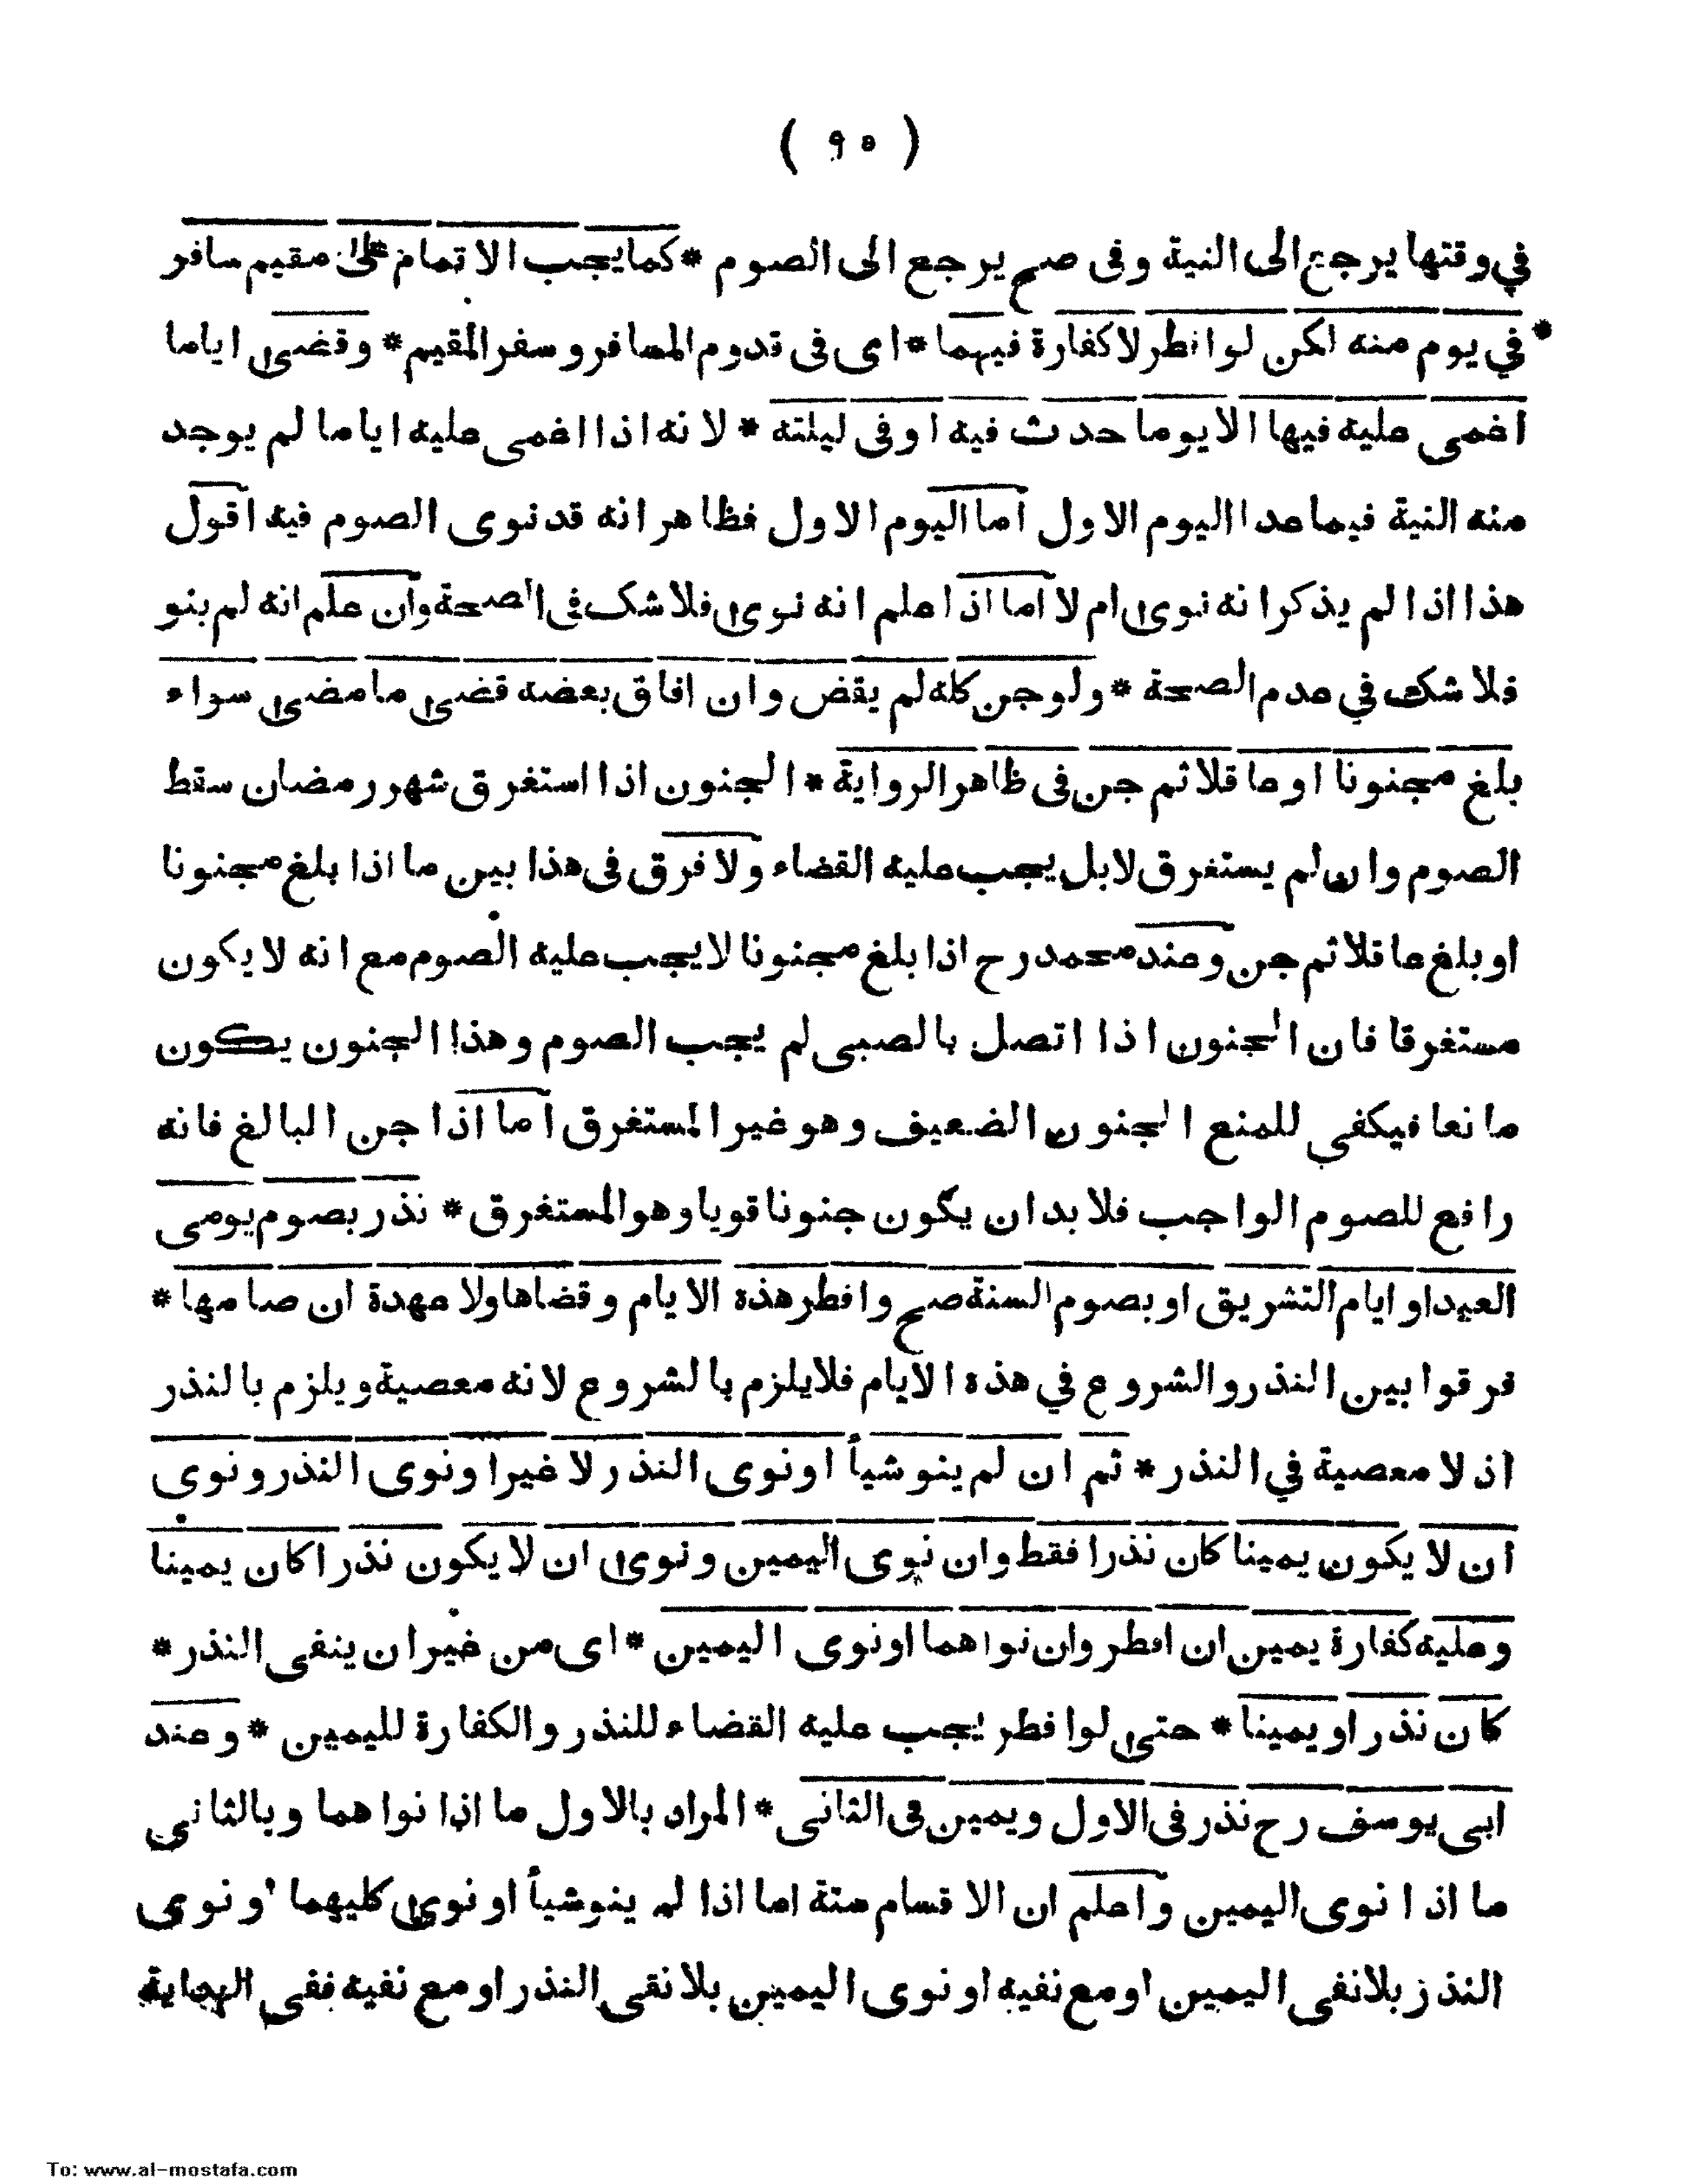 ( ٩٥ )
في وقتها يرجع الى النية وفى صح يرجع الى الصوم * كما يجب الاتمام على مقيم سافر
في يوم منه لكن لو افطر لا كفارة فيهما * اى فى قدوم المسافر وسفر المقيم * وقضى اياما *
اغمى عليه فيها الا يوما حدث فيه او فى ليلته * لانه اذا اغمى عليه اياما لم يوجد
منه النية فيما عدا اليوم الاول اما اليوم الاول فظاهر انه قد نوى الصوم فيه اقول
هذا اذا لم يذكر انه نوى ام لا اما اذا علم انه نوى فلا شك فى الصحة وان علم انه لم ينو
فلا شك في عدم الصحة * ولو جن كله لم يقض وان افاق بعضه قضى ما مضى سواء
بلغ مجنونا او عاقلا ثم جن فى ظاهر الرواية * الجنون اذا استغرق شهر رمضان سقط
الصوم وان لم يستغرق لا بل يجب عليه القضاء ولا فرق فى هذا بين ما اذا بلغ مجنونا
او بلغ عاقلا ثم جن وعند محمد رح اذا بلغ مجنونا لا يجب عليه الصوم مع انه لا يكون
مستغرقا فان الجنون اذا اتصل بالصبى لم يجب الصوم وهذا الجنون يكون
مانعا فيكفي للمنع الجنون الضعيف وهو غير المستغرق اما اذا جن البالغ فانه
رافع للصوم الواجب فلا بد ان يكون جنونا قويا وهو المستغرق * نذر بصوم يومى
العيد او ايام التشريق او بصوم السنة صح وافطر هذه الايام وقضاها ولا عهدة ان صامها *
فرقوا بين النذر والشروع في هذه الايام فلا يلزم بالشروع لانه معصية ويلزم بالنذر
اذ لا معصية في النذر * ثم ان لم ينو شيأ او نوى النذر لا غير او نوى النذر ونوى
ان لا يكون يمينا كان نذرا فقط وان نوى اليمين ونوى ان لا يكون نذرا كان يمينا
وعليه كفارة يمين ان افطر وان نواهما او نوى اليمين * اى من غير ان ينفى النذر *
كان نذرا ويمينا * حتى لو افطر يجب عليه القضاء للنذر والكفارة لليمين * وعند
ابى يوسف رح نذر فى الاول ويمين فى الثانى * المراد بالاول ما اذا نواهما وبالثاني
ما اذا نوى اليمين واعلم ان الاقسام ستة اما اذا لم ينو شيأ او نوى كليهما او نوى
النذر بلا نفى اليمين او مع نفيه او نوى اليمين بلا نفى النذر او مع نفيه ففى الهداية
To: www.al-mostafa.com